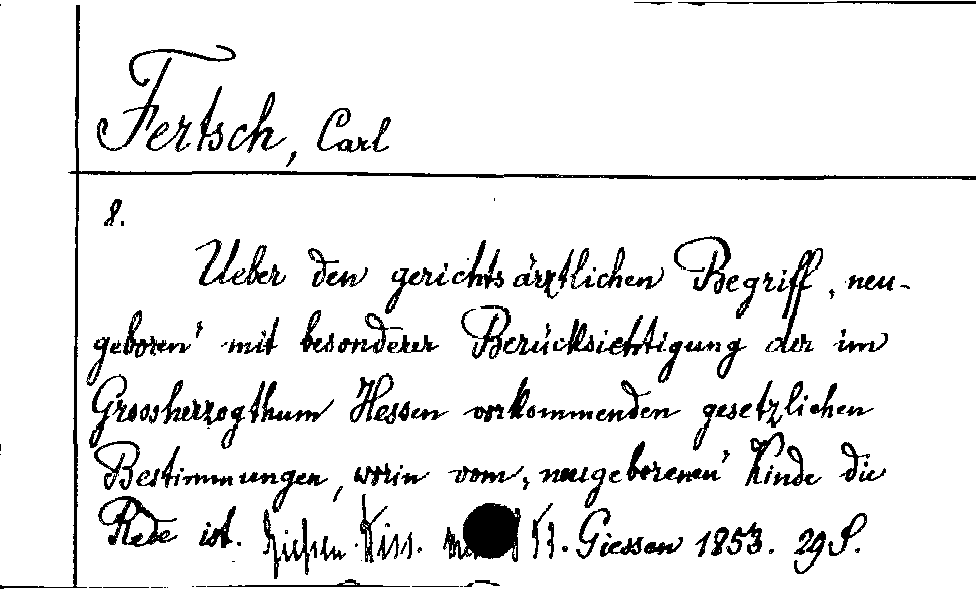 Fertsch, Carl
8.
Ueber den gerichtsärztlichen Begriff „neu-
geboren" mit besonderer Berücksichtigung der im
Grossherzogthum Hessen vorkommenden gesetzlichen
Bestimmungen, worin vom „neugeborenen" Kinde die
Rede ist. Giessen. Diss. Giessen 1853. 29 S.